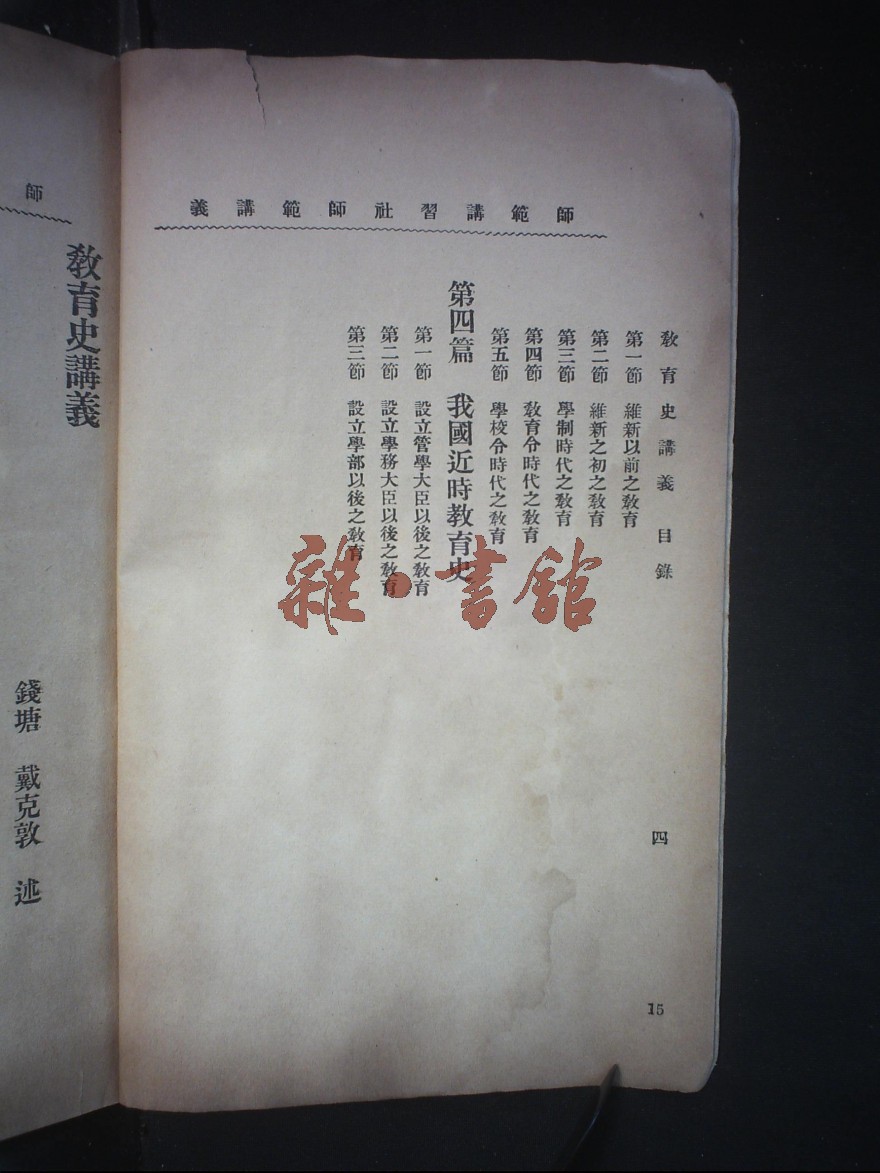 師範講習社師範講義
教育史講義目錄
四
第一節 維新以前之敎育
第二節 維新之初之敎育
第三節 學制時代之敎育
第四節 敎育令時代之敎育
第五節 學校令時代之敎育
第四篇 我國近時教育史
第一節 設立管學大臣以後之敎育
第二節 設立學務大臣以後之敎育
第三節 設立學部以後之敎育
15
雜·書館
師
敎育史講義
錢塘 戴克敦 述